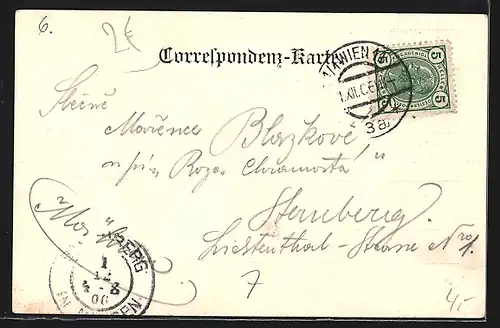 6.
2€
Correspondenz-Karte
WIEN
1.XII.06
3a.
5 5
5 5
Slečně
Mařence Blažkové
u p. Roger Chramosta
Sternberg
Liechtenthal-Strasse Nr 1.
BERG
1
12
06
IN MÄHREN
7
4,-